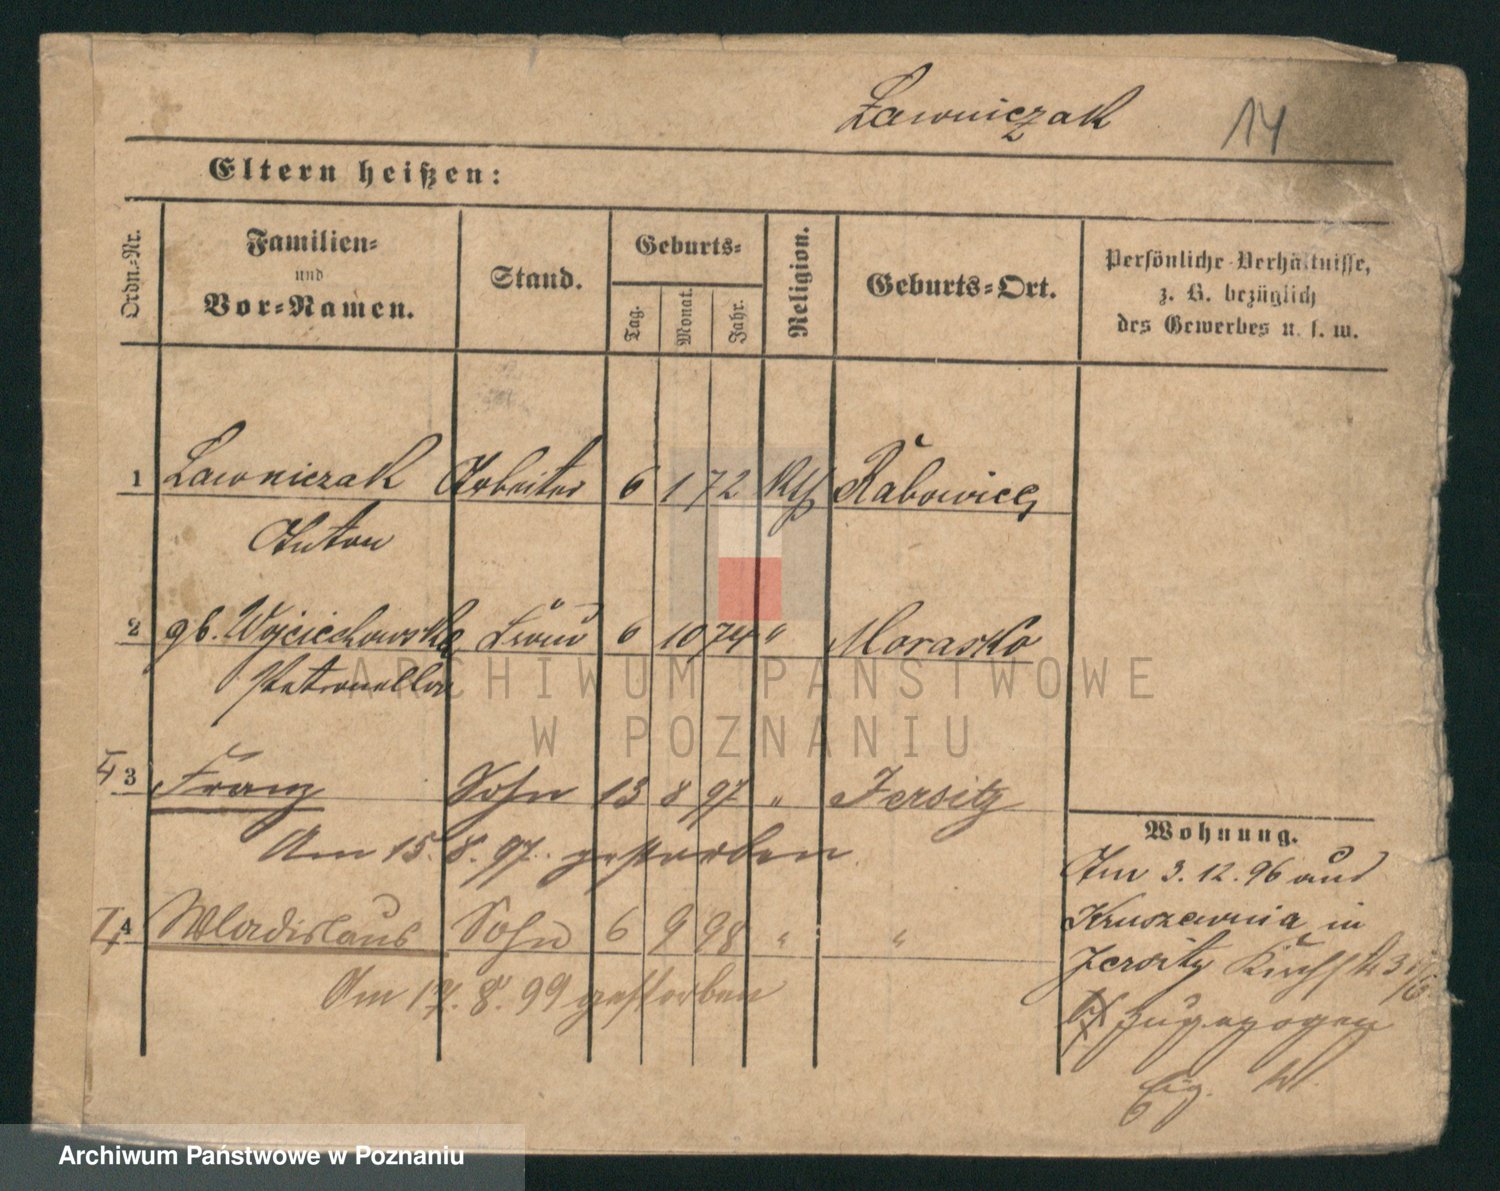 Ławniczak 14
Eltern heißen:
Ordn.-Nr.
Familien-
und
Vor-Namen.
Stand.
Geburts-
Tag.
Monat.
Jahr.
Religion.
Geburts-Ort.
Persönliche Verhältnisse,
z. B. bezüglich
des Gewerbes u. s. w.
1 Ławniczak Arbeiter 6 1 72 Kth Rabowice
Anton
2 gb. Wojciechowska 6 10 74 " Morasko
Petronella
3 Franz Sohn 13 8 97 " Jersitz
Am 15. 8. 97. gestorben
4 Wladislaus Sohn 6 9 98 " "
Am 8. 99 gestorben
Wohnung.
Am 3. 12. 96 aus
in
Jersitz
zugezogen
ARCHIWUM PAŃSTWOWE
W POZNANIU
Archiwum Państwowe w Poznaniu